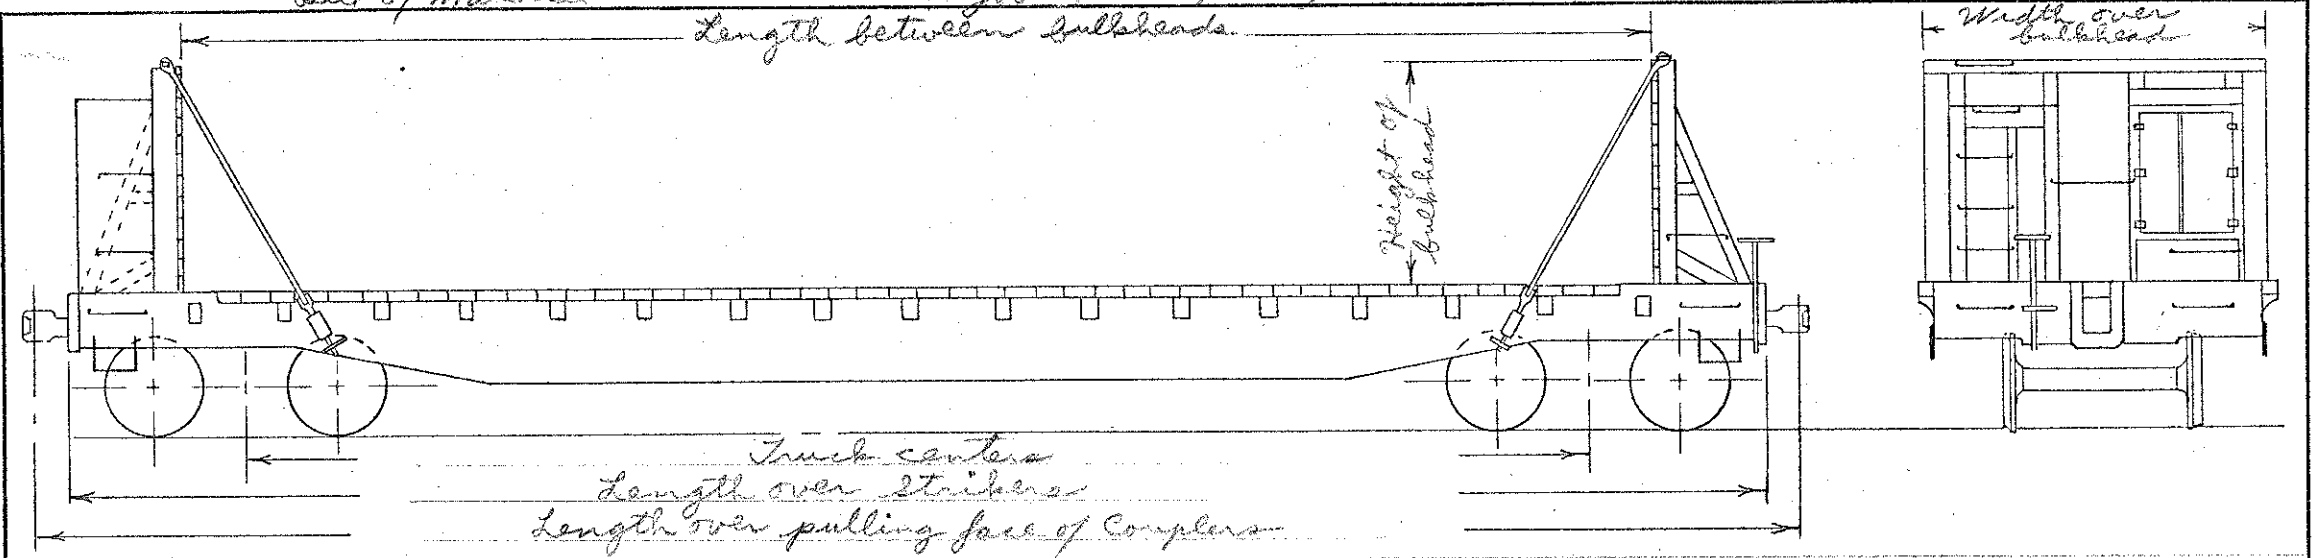 Length between bulkheads
Width over
bulkhead
Height of
bulkhead
Truck centers
Length over Strikers
Length over pulling face of Couplers